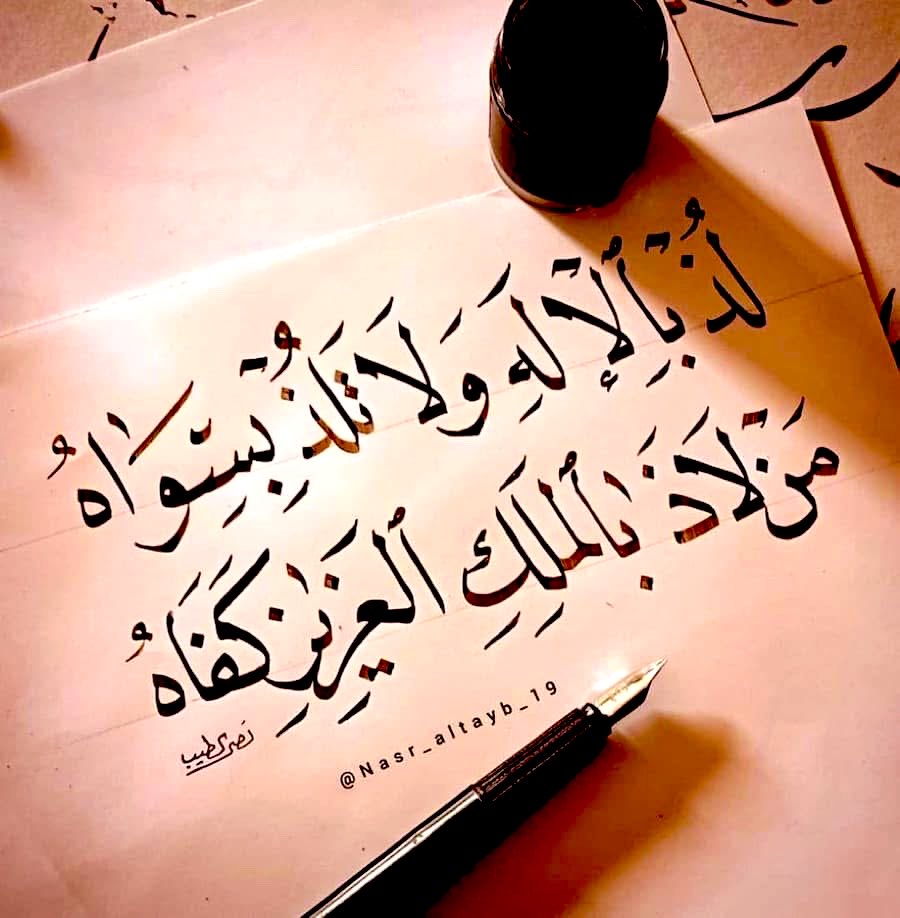 لُذْ بِالْإِلَهِ وَلَا تَلُذْ بِسِوَاهُ
مَنْ لَاذَ بِالْمَلِكِ الْعَزِيزِ كَفَاهُ
نصر الطيب
@Nasr_altayb_19